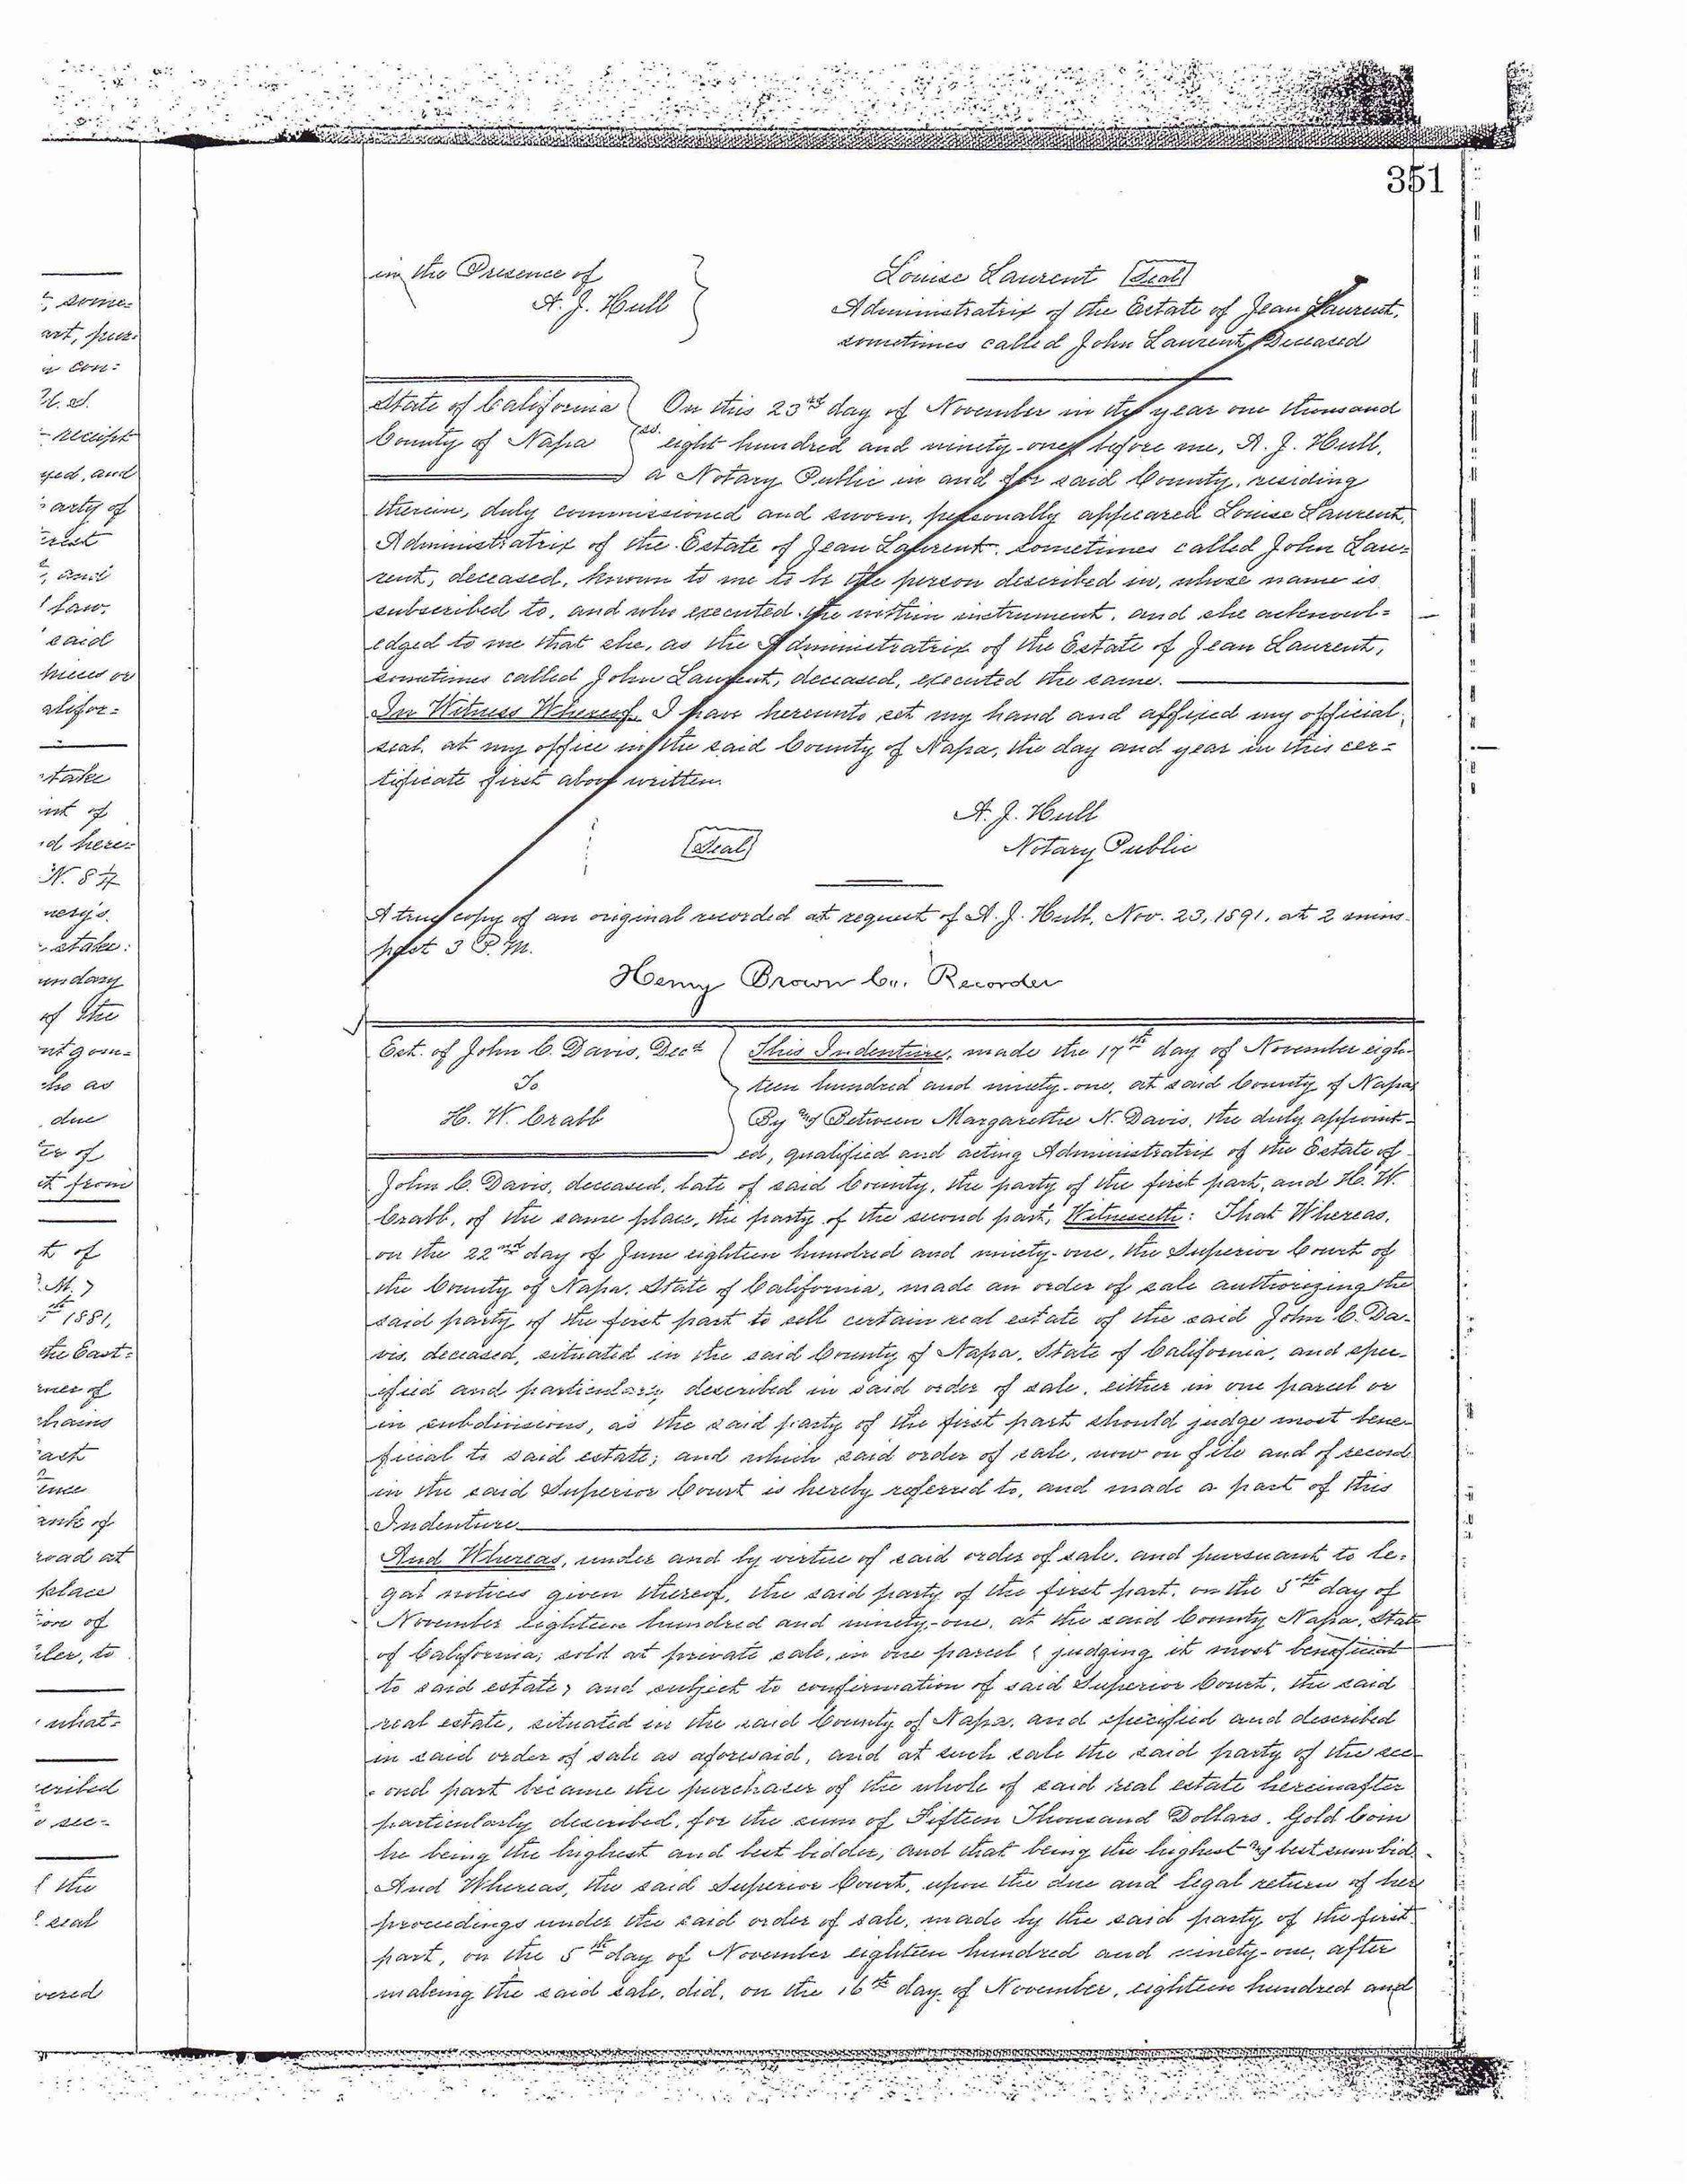 351
in the Presence of
A. J. Hull
Louise Laurent [Seal]
Administratrix of the Estate of Jean Laurent,
sometimes called John Laurent, Deceased
State of California
County of Napa
ss.
On this 23rd day of November in the year one thousand
eight hundred and ninety-one, before me, A. J. Hull,
a Notary Public in and for said County, residing
therein, duly commissioned and sworn, personally appeared Louise Laurent,
Administratrix of the Estate of Jean Laurent, sometimes called John Lau=
rent, deceased, known to me to be the person described in, whose name is
subscribed to, and who executed the within instrument, and she acknowl=
edged to me that she, as the Administratrix of the Estate of Jean Laurent,
sometimes called John Laurent, deceased, executed the same.
In Witness Whereof, I have hereunto set my hand and affixed my official
seal, at my office in the said County of Napa, the day and year in this cer=
tificate first above written.
A. J. Hull
[Seal] Notary Public
A true copy of an original recorded at request of A. J. Hull, Nov. 23, 1891, at 2 mins.
past 3 P.M.
Henry Brown Co. Recorder
Est. of John C. Davis, Decd
To
H. W. Crabb
This Indenture, made the 17th day of November eigh-
teen hundred and ninety-one, at said County of Napa
By and Between Margarethe N. Davis, the duly appoint-
ed, qualified and acting Administratrix of the Estate of
John C. Davis, deceased, late of said County, the party of the first part, and H. W.
Crabb, of the same place, the party of the second part, Witnesseth: That Whereas,
on the 22nd day of June eighteen hundred and ninety-one, the Superior Court of
the County of Napa, State of California, made an order of sale authorizing the
said party of the first part to sell certain real estate of the said John C. Da-
vis, deceased, situated in the said County of Napa, State of California, and spec-
ified and particularly described in said order of sale, either in one parcel or
in subdivisions, as the said party of the first part should judge most bene-
ficial to said estate; and which said order of sale, now on file and of record
in the said Superior Court is hereby referred to, and made a part of this
Indenture
And Whereas, under and by virtue of said order of sale, and pursuant to le-
gal notices given thereof, the said party of the first part, on the 5th day of
November eighteen hundred and ninety-one, at the said County Napa, State
of California, sold at private sale, in one parcel (judging it most beneficial
to said estate) and subject to confirmation of said Superior Court, the said
real estate, situated in the said County of Napa, and specified and described
in said order of sale as aforesaid, and at such sale the said party of the sec-
ond part became the purchaser of the whole of said real estate hereinafter
particularly described, for the sum of Fifteen Thousand Dollars, Gold Coin
he being the highest and best bidder, and that being the highest and best sum bid
And Whereas, the said Superior Court, upon the due and legal return of her
proceedings under the said order of sale, made by the said party of the first
part, on the 5th day of November eighteen hundred and ninety-one, after
making the said sale, did, on the 16th day of November, eighteen hundred and